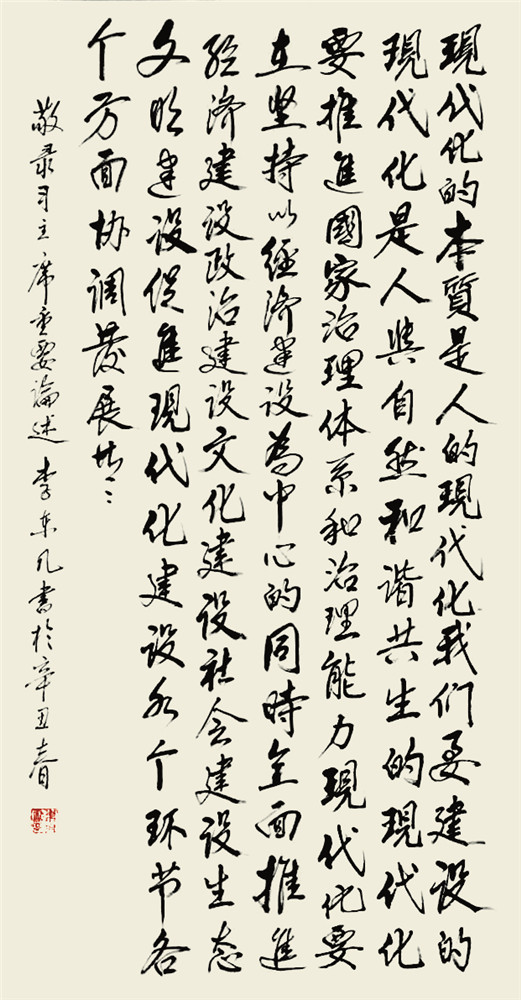 現代化的本質是人的現代化我们要建設的
現代化是人與自然和谐共生的現代化
要推進國家治理体系和治理能力現代化要
在坚持以经济建设為中心的同時全面推進
经济建设政治建设文化建设社会建设生态
文明建设促進現代化建设各个环节各
个方面协调發展
敬录习主席重要論述 李东凡書於辛丑春